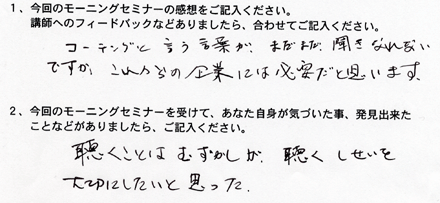 1、今回のモーニングセミナーの感想をご記入ください。
講師へのフィードバックなどありましたら、合わせてご記入ください。
コーチングと言う言葉が、まだまだ聞きなれない
ですが、これからの企業には必要だと思います。
2、今回のモーニングセミナーを受けて、あなた自身が気づいた事、発見出来た
ことなどがありましたら、ご記入ください。
聴くことはむずかしが、聴くしせいを
大切にしたいと思った。